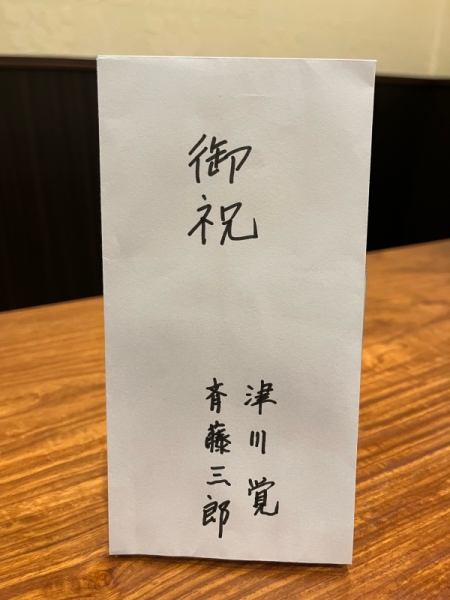 御祝
津川覚
斉藤三郎